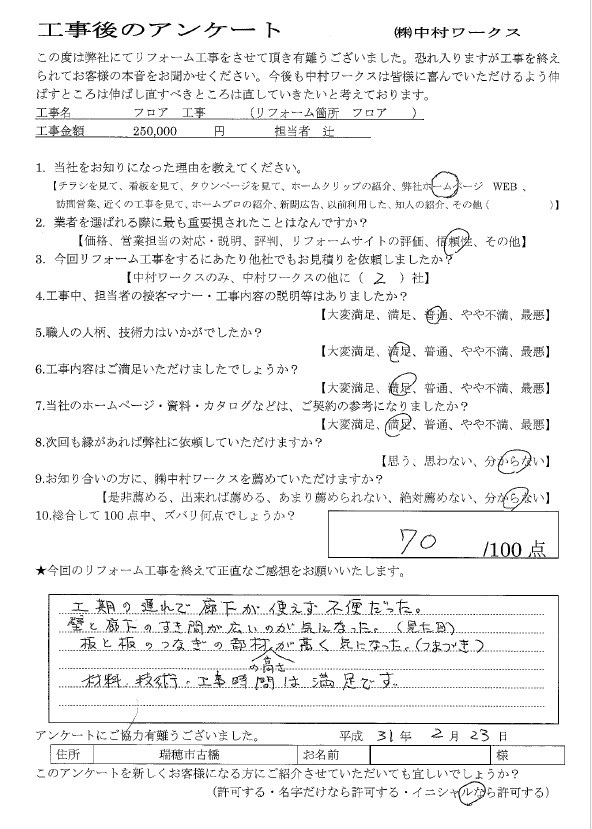 工事後のアンケート ㈱中村ワークス
この度は弊社にてリフォーム工事をさせて頂き有難うございました。恐れ入りますが工事を終え
られてお客様の本音をお聞かせください。今後も中村ワークスは皆様に喜んでいただけるよう伸
ばすところは伸ばし直すべきところは直していきたいと考えております。
工事名 フロア 工事 (リフォーム箇所 フロア )
工事金額 250,000 円 担当者 辻
1. 当社をお知りになった理由を教えてください。
【チラシを見て、看板を見て、タウンページを見て、ホームクリップの紹介、弊社ホームページ WEB 、
訪問営業、近くの工事を見て、ホームプロの紹介、新聞広告、以前利用した、知人の紹介、その他( )】
2. 業者を選ばれる際に最も重要視されたことはなんですか?
【価格、営業担当の対応・説明、評判、リフォームサイトの評価、信頼性、その他】
3. 今回リフォーム工事をするにあたり他社でもお見積りを依頼しましたか?
【中村ワークスのみ、中村ワークスの他に( 2 )社】
4.工事中、担当者の接客マナー・工事内容の説明等はありましたか?
【大変満足、満足、普通、やや不満、最悪】
5.職人の人柄、技術力はいかがでしたか?
【大変満足、満足、普通、やや不満、最悪】
6.工事内容はご満足いただけましたでしょうか?
【大変満足、満足、普通、やや不満、最悪】
7.当社のホームページ・資料・カタログなどは、ご契約の参考になりましたか?
【大変満足、満足、普通、やや不満、最悪】
8.次回も縁があれば弊社に依頼していただけますか?
【思う、思わない、分からない】
9.お知り合いの方に、㈱中村ワークスを薦めていただけますか?
【是非薦める、出来れば薦める、あまり薦められない、絶対薦めない、分からない】
10.総合して100点中、ズバリ何点でしょうか?
70 /100点
★今回のリフォーム工事を終えて正直なご感想をお願いいたします。
工期の遅れで廊下が使えず不便だった。
壁と廊下のすき間が広いのが気になった。(見た目)
板と板のつなぎの部材が高く気になった。(つまづき)
の高さ
材料、技術、工事時間は満足です。
アンケートにご協力有難うございました。 平成 31 年 2 月 23 日
住所 瑞穂市古橋 お名前 様
このアンケートを新しくお客様になる方にご紹介させていただいても宜しいでしょうか?
(許可する・名字だけなら許可する・イニシャルなら許可する)